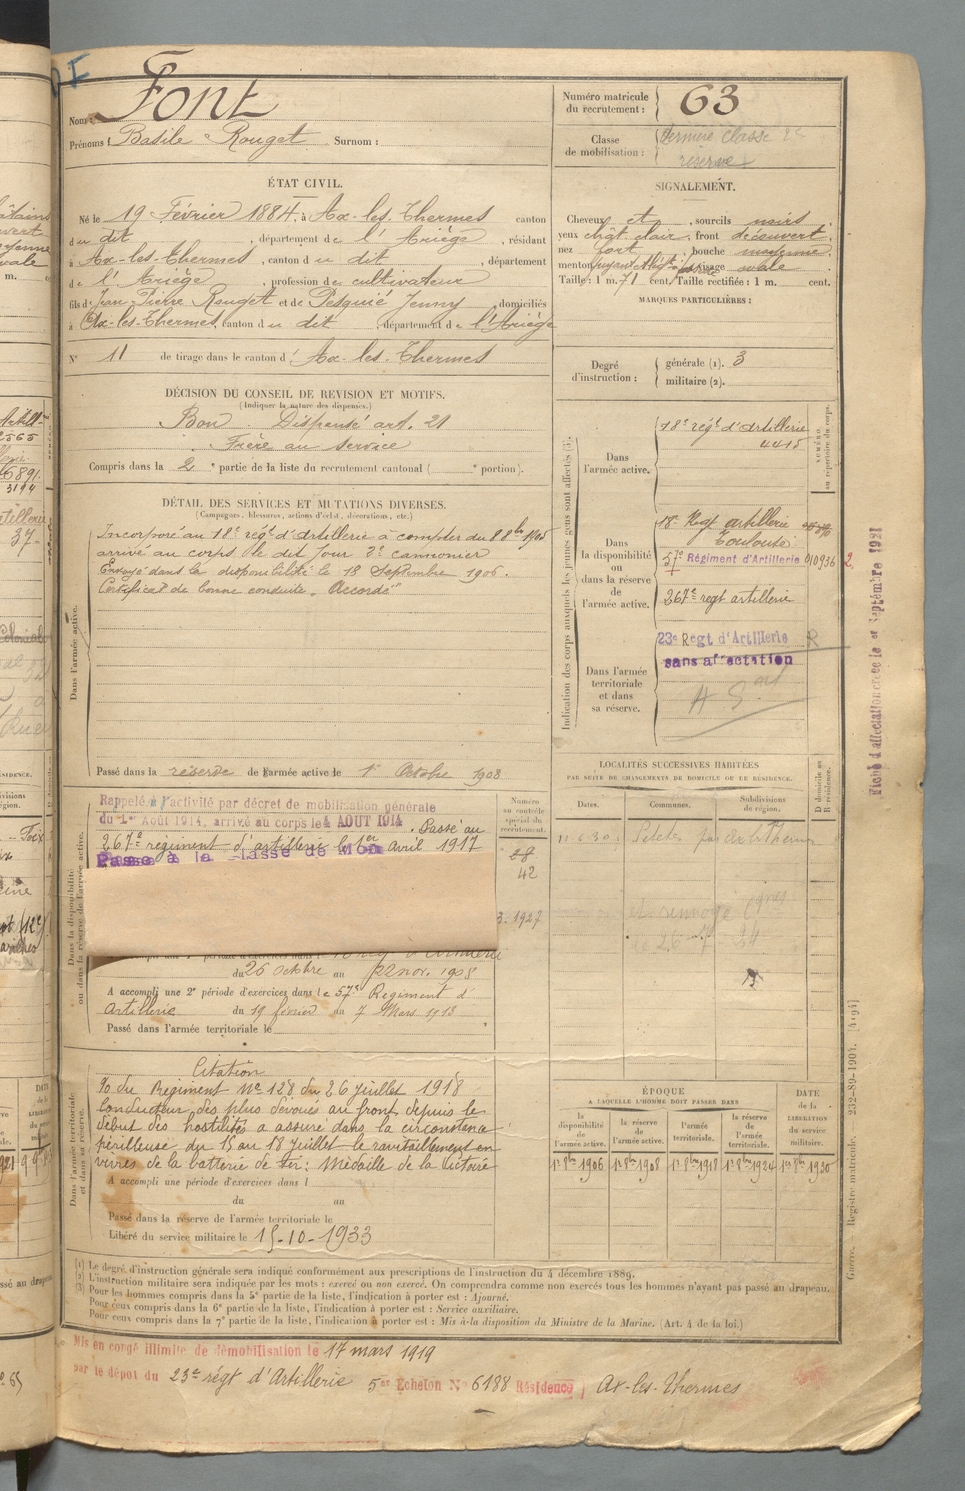 Nom : Font
Prénoms : Basile Rouget Surnom :
ÉTAT CIVIL.
Né le 19 Février 1884, à Ax-les-Thermes canton
du dit, département de l'Ariège, résidant
à Ax-les-Thermes, canton du dit, département
de l'Ariège, profession de cultivateur
fils de Jean Pierre Rouget et de Pesquié Jenny domiciliés
à Ax-les-Thermes, canton du dit, département de l'Ariège
N° 11 de tirage dans le canton d' Ax-les-Thermes
DÉCISION DU CONSEIL DE REVISION ET MOTIFS.
(Indiquer la nature des dispenses.)
Bon Dispensé art. 21
Frère au service
Compris dans la 2e partie de la liste du recrutement cantonal ( e portion).
DÉTAIL DES SERVICES ET MUTATIONS DIVERSES.
(Campagnes, blessures, actions d'éclat, décorations, etc.)
Dans l'armée active.
Incorporé au 18e régt d'Artillerie à compter du 8 8bre 1905
arrivé au corps le dit jour 2e cannonier
Envoyé dans la disponibilité le 18 Septembre 1906.
Certificat de bonne conduite "Accordé"
Passé dans la réserve de l'armée active le 1er Octobre 1908
Dans la disponibilité
ou dans la réserve de l'armée active.
Rappelé à l'activité par décret de mobilisation générale
du 1er Août 1914, arrivé au corps le 4 AOUT 1914. Passé au
267e régiment d'artillerie le 1er avril 1917
Passé à la classe de Mon
3-1927
du 26 octobre au 22 nov. 1908
A accompli une 2e période d'exercices dans le 57e Régiment d'
Artillerie du 19 février au 7 Mars 1913
Passé dans l'armée territoriale le
Dans l'armée territoriale
et dans sa réserve.
Citation
% du Régiment N° 128 du 26 Juillet 1918
Conducteur des plus dévoués au front depuis le
début des hostilités a assuré dans la circonstance
périlleuse du 15 au 18 Juillet le ravitaillement en
vivres de la batterie de tir; Médaille de la Victoire
A accompli une période d'exercices dans l
du au
Passé dans la réserve de l'armée territoriale le
Libéré du service militaire le 15-10-1933
Numéro matricule
du recrutement : 63
Classe
de mobilisation : dernière classe 2e
réserve
SIGNALEMENT.
Cheveux et, sourcils noirs
yeux chât. clair, front découvert,
nez fort, bouche moyenne,
menton visage ovale
Taille : 1 m. 71 cent. Taille rectifiée : 1 m. cent.
MARQUES PARTICULIÈRES :
Degré
d'instruction :
générale (1). 3
militaire (2).
Indication des corps auxquels les jeunes gens sont affectés (3).
NUMÉRO
au répertoire du corps.
Dans
l'armée active.
18e régt d'Artillerie
4415
Dans
la disponibilité
ou
dans la réserve
de
l'armée active.
18e Regt artillerie
Toulouse
57e Régiment d'Artillerie 010936 2
267e regt artillerie
Dans l'armée
territoriale
et dans
sa réserve.
23e Regt d'Artillerie R
sans affectation
LOCALITÉS SUCCESSIVES HABITÉES
PAR SUITE DE CHANGEMENTS DE DOMICILE OU DE RÉSIDENCE.
Dates. Communes. Subdivisions
de région. D domicile ou
R résidence.
11-6-30
Numéro
au contrôle
spécial du
recrutement.
28
42
ÉPOQUE
A LAQUELLE L'HOMME DOIT PASSER DANS
la
disponibilité
de
l'armée active.
la réserve
de
l'armée active.
l'armée
territoriale.
la réserve
de
l'armée
territoriale.
DATE
de la
LIBÉRATION
du service
militaire.
1er 8bre 1906 1er 8bre 1908 1er 8bre 1918 1er 8bre 1924 1er 8bre 1930
(1) Le degré d'instruction générale sera indiqué conformément aux prescriptions de l'instruction du 4 décembre 1889.
(2) L'instruction militaire sera indiquée par les mots : exercé ou non exercé. On comprendra comme non exercés tous les hommes n'ayant pas passé au drapeau.
(3) Pour les hommes compris dans la 5e partie de la liste, l'indication à porter est : Ajourné.
Pour ceux compris dans la 6e partie de la liste, l'indication à porter est : Service auxiliaire.
Pour ceux compris dans la 7e partie de la liste, l'indication à porter est : Mis à la disposition du Ministre de la Marine. (Art. 4 de la loi.)
Mis en congé illimité de démobilisation le 17 mars 1919
par le dépôt du 23e régt d'Artillerie 5e Echelon N° 6188 Résidence Ax-les-Thermes
Fiche d'affectation créée le 1er Septembre 1921
Guerre. — Registre matricule. 232-89-1904. [4194]